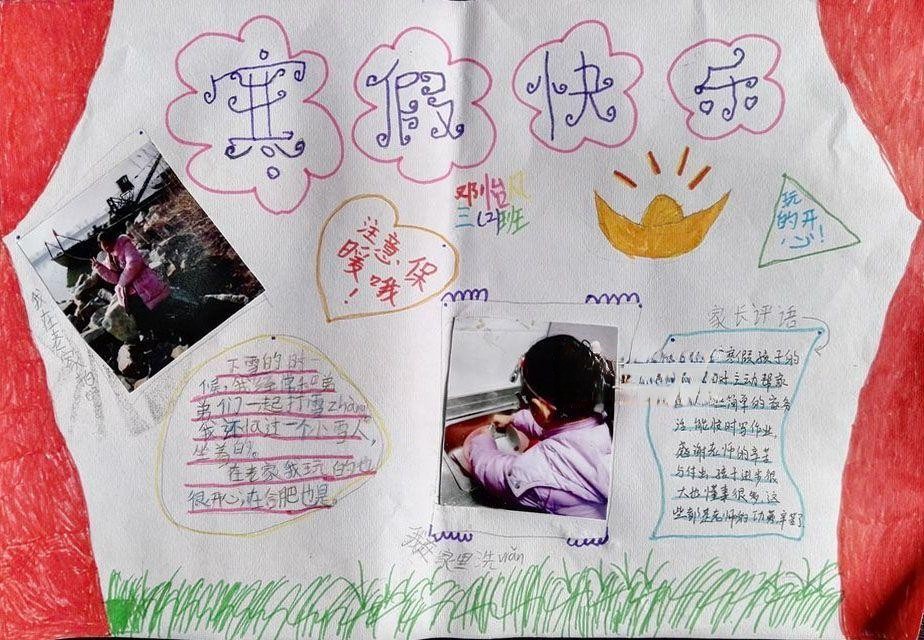 寒假快乐
邓怡风
三(2)班
玩
的开
心!
注意保
暖哦
!
我在老家拍
家长评语
下雪的时
候,我经常和弟
弟们一起打雪zhàng
我还做过一个小雪人,
挺美的。
在老家我玩的也
很开心,在合肥也是。
寒假孩子的
时主动帮家
简单的家务
活,能按时写作业,
感谢老师的辛苦
与付出,孩子进步很
大也懂事很多,这
些都是老师的功劳,辛苦了
家里洗wǎn